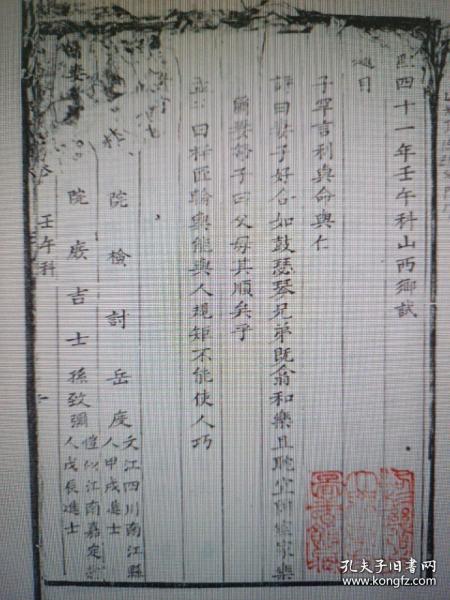 熙四十一年壬午科山西鄉試
題目
子罕言利與命與仁
詩曰妻子好合如鼓瑟琴兄弟既翕和樂且耽宜爾室家樂
爾妻帑子曰父母其順矣乎
孟子曰梓匠輪輿能與人規矩不能使人巧
院檢討岳度
文江四川南江縣
人甲戌進士
院庶吉士孫致彌
愷似江南嘉定縣
人戊辰進士
壬午科
孔夫子旧书网
www.kongfz.com